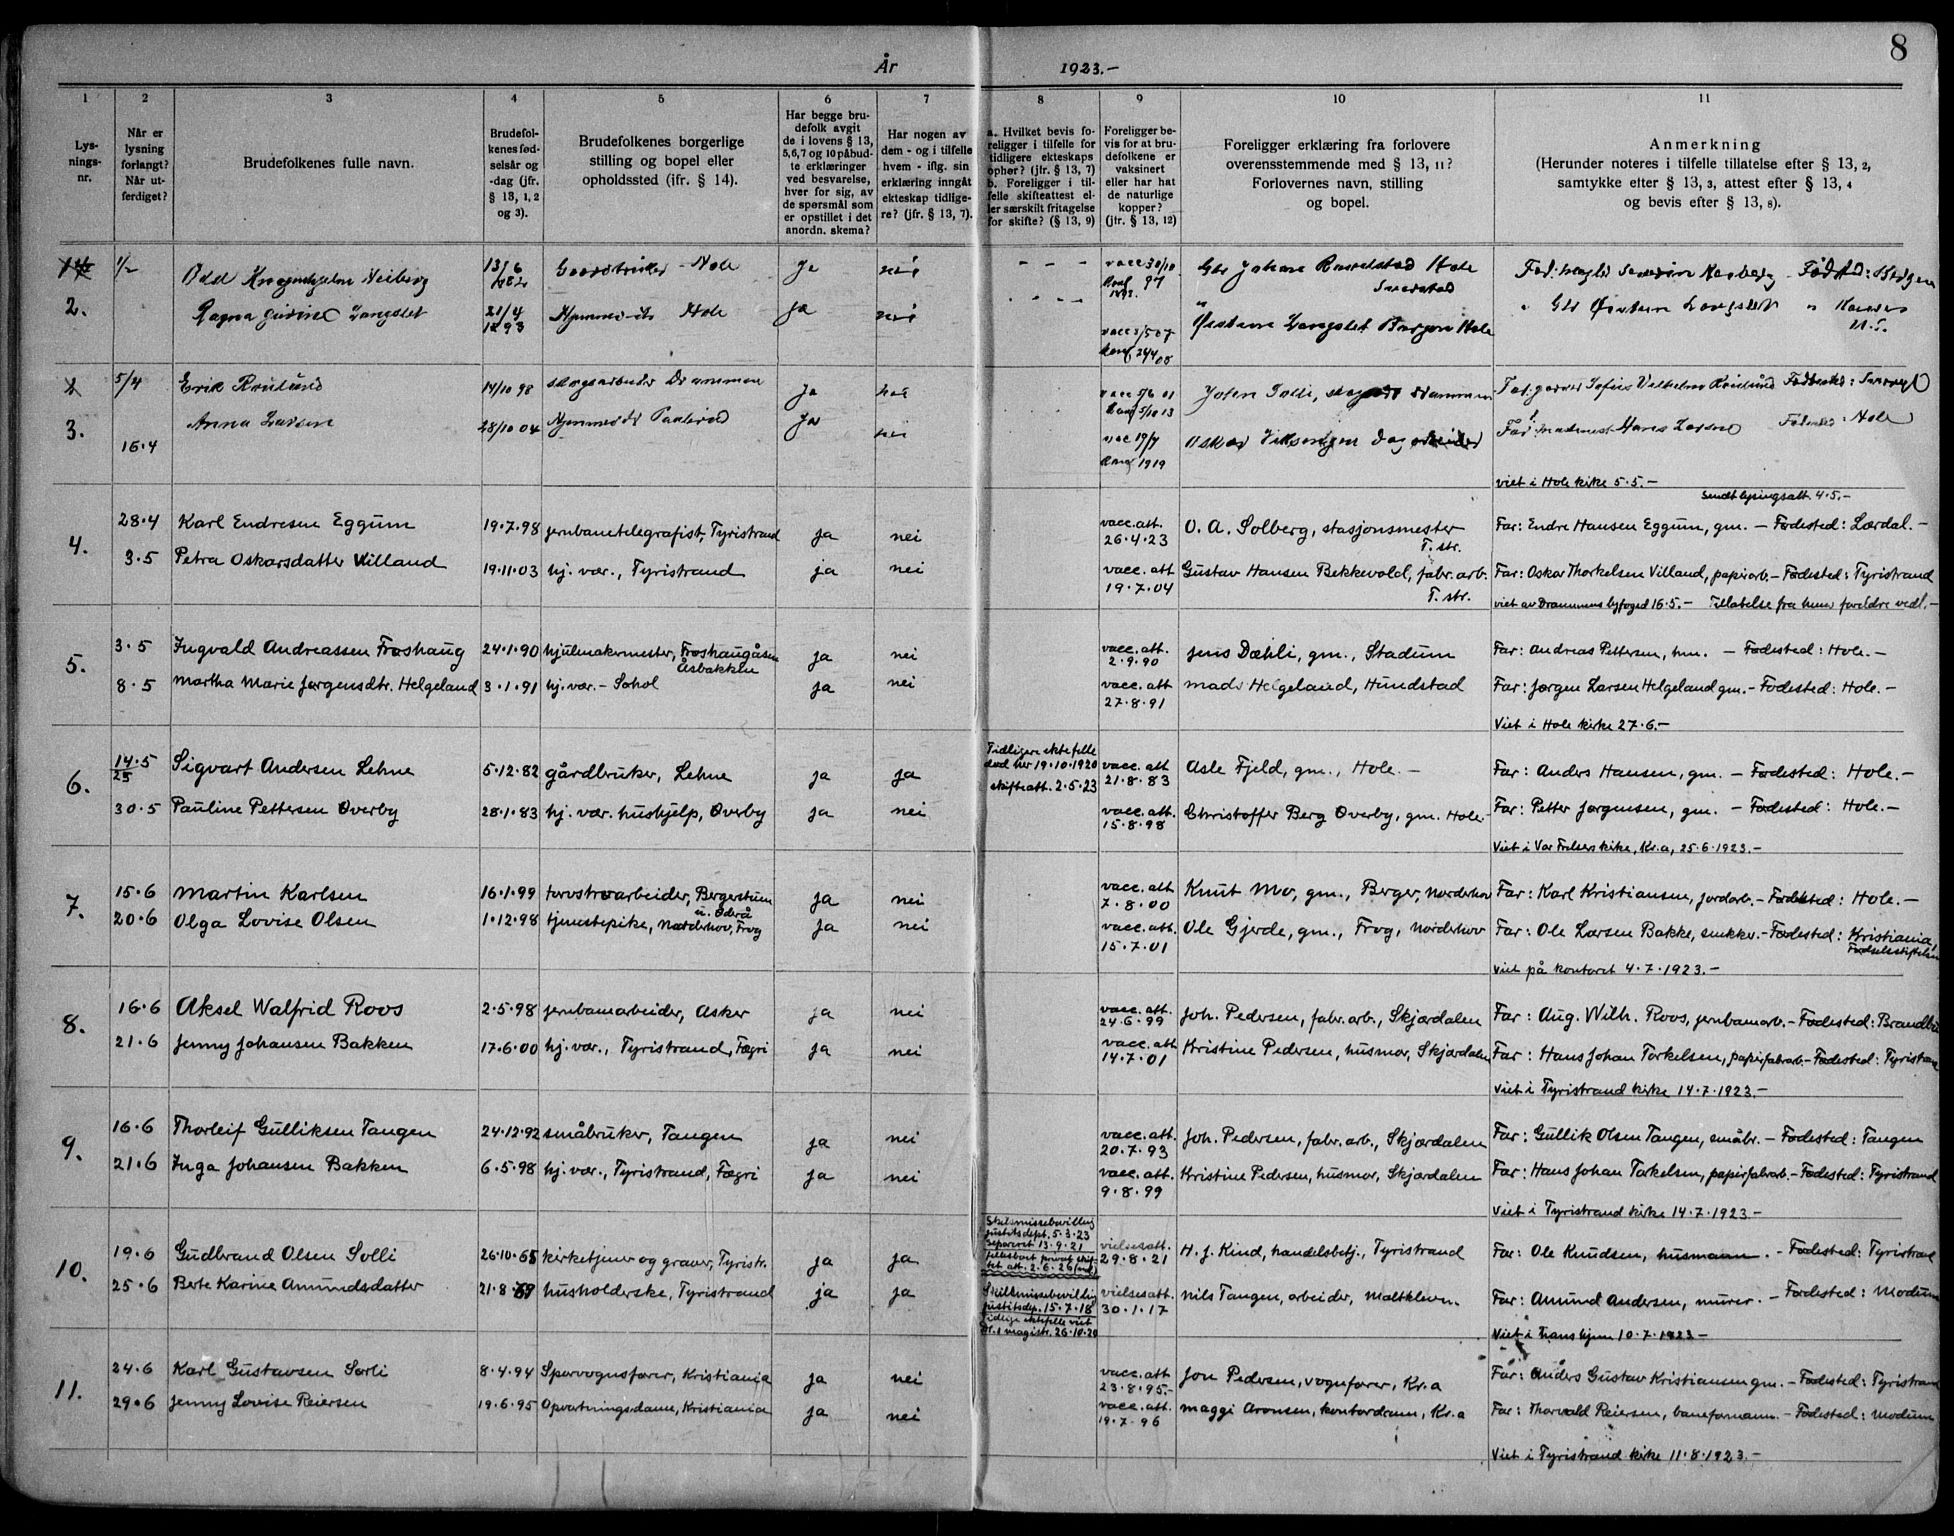 8
År 1923.-
1 2 3 4 5 6 7 8 9 10 11
Lysningsnr.
Når er lysning forlangt? Når utferdiget?
Brudefolkenes fulle navn.
Brudefolkenes fødselsår og -dag (jfr. § 13, 1, 2 og 3).
Brudefolkenes borgerlige stilling og bopel eller opholdssted (ifr. § 14).
Har begge brudefolk avgit de i lovens § 13, 5,6,7 og 10 påbudte erklæringer ved besvarelse, hver for sig, av de spørsmål som er opstillet i det anordn. skema?
Har nogen av dem - og i tilfelle hvem - iflg. sin erklæring inngåt ekteskap tidligere? (jfr. § 13, 7).
a. Hvilket bevis foreligger i tilfelle for tidligere ekteskaps ophør? (jfr. § 13, 7) b. Foreligger i tilfelle skifteattest eller særskilt fritagelse for skifte? (§ 13, 9)
Foreligger bevis for at brudefolkene er vaksinert eller har hat de naturlige kopper? (jfr. § 13, 12)
Foreligger erklæring fra forlovere overensstemmende med § 13, 11? Forlovernes navn, stilling og bopel.
Anmerkning (Herunder noteres i tilfelle tillatelse efter § 13, 2, samtykke efter § 13, 3, attest efter § 13, 4 og bevis efter § 13, 8).
1/2 Odd 13/6 Hole ja nei - - - vacc 30/10 97 Johan Hole
2. Ragna 21/4 1893 Hole ja nei - - - Hole
5/4 Erik 14/10 98 skogsarbeider Drammen ja nei vacc 5/6 01 Konf 5/10 13 Drammen
3. Anna Larsen 28/10 04 ja nei vac 19/7 Konf 1919 Oskar Hans Larsen Hole
16.4
viet i Hole kirke 5.5.-
Sendt lysingsatt. 4.5.-
28.4 Karl Endresen Eggum 19.7.98 jernbanetelegrafist, Tyristrand ja nei vacc. att. 26.4.23 O. A. Solberg, stasjonsmester T. str. Far: Endre Hansen Eggum, gm. - Fødested: Lærdal.-
4. 3.5 Petra Oskarsdatter Villand 19.11.03 hj. vær., Tyristrand ja nei vacc. att 19.7.04 Gustav Hansen Bekkevold, fabr. arb. T. str. Far: Oskar Thorkelsen Villand, papirarb. - Fødested: Tyristrand
viet av Drammens byfoged 16.5.- Tillatelse fra hens foreldre vedl.-
3.5 Ingvald Andreassen Frøshaug 24.1.90 hjulmakermester, Frøshaugåsen Åsbakken ja nei vacc. att. 2.9.90 Jens Dæhli, gm., Stadum Far: Andreas Pettersen, hm. - Fødested: Hole.-
5. 8.5 Martha Marie Jørgensdtr. Helgeland 3.1.91 hj. vær. - Sohol ja nei vacc. att 27.8.91 Mads Helgeland, Hundstad Far: Jørgen Larsen Helgeland gm. - Fødested: Hole.-
Viet i Hole kirke 27.6.-
14.5 25 Sigvart Andersen Lehne 5.12.82 gårdbruker, Lehne ja ja Tidligere ektefelle død her 19.10.1920 skifteatt. 2.5.23 vacc. att 21.8.83 Asle Fjeld, gm., Hole.- Far: Anders Hansen, gm. - Fødested: Hole.-
6. 30.5 Pauline Pettersen Øverby 28.1.83 hj. vær. hushjelp, Øverby ja nei vacc. att. 15.8.98 Christoffer Berg Øverby, gm. Hole.- Far: Petter Jørgensen, gm. - Fødested: Hole.-
Viet i Vor Frelsers kirke, Kr.a, 25.6.1923.-
15.6 Martin Karlsen 16.1.99 torvstrøarbeider, Bergerstum u. Oderå ja nei vacc. att 7.8.00 Knut Mo, gm., Berger, Norderhov Far: Karl Kristiansen, jordarb. - Fødested: Hole.-
7. 20.6 Olga Lovise Olsen 1.12.98 tjenestepike, Norderhov, Frog ja nei vacc. att. 15.7.01 Ole Gjerde, gm., Frog, Norderhov Far: Ole Larsen Bakke, snekker. - Fødested: Kristiania, Fødselsstiftelsen
Viet på kontoret 4.7.1923.-
16.6 Aksel Walfrid Roos 2.5.98 jernbanearbeider, Asker ja nei vacc. att. 24.6.99 Joh. Pedersen, fabr. arb., Skjærdalen Far: Aug. Wilh. Roos, jernbanearb. - Fødested: Brandbu
8. 21.6 Jenny Johansen Bakken 17.6.00 hj. vær., Tyristrand, Fægri ja nei vacc. att 14.7.01 Kristine Pedersen, husmor, Skjærdalen Far: Hans Johan Torkelsen, papirfabrarb. - Fødested: Tyristrand
Viet i Tyristrand kirke 14.7.1923.-
16.6 Thorleif Gulliksen Tangen 24.12.92 småbruker, Tangen ja nei vacc. att. 20.7.93 Joh. Pedersen, fabr. arb., Skjærdalen Far: Gullik Olsen Tangen, småbr. - Fødested: Tangen
9. 21.6 Inga Johansen Bakken 6.5.98 hj. vær., Tyristrand, Fægri ja nei vacc. att. 9.8.99 Kristine Pedersen, husmor, Skjærdalen Far: Hans Johan Torkelsen, papirfabrarb. - Fødested: Tyristrand
Viet i Tyristrand kirke 14.7.1923.-
19.6 Gudbrand Olsen Solli 26.10.65 kirketjener og graver, Tyristr. ja ja Skilsmissebevilling justitsdept. 5.3.23 Separert 13.9.21 privat att. 2.6.26 vielsesatt. 29.8.21 H. J. Kind, handelsbetj., Tyristrand Far: Ole Knudsen, husmann. - Fødested: Tyristrand
10. 25.6 Berte Karine Amundsdatter 21.8. husholderske, Tyristrand ja ja Skilsmissebevilling justitsdep. 15.7.18 tidlige ektefelle viet magistr. 26.10.20 vielsesatt. 30.1.17 Nils Tangen, arbeider, Maltkleven. Far: Amund Andersen, murer. - Fødested: Modum
Viet i 10.7.1923.-
24.6 Karl Gustavsen Sørli 8.4.94 Sporvognsfører, Kristiania ja nei vacc. att 23.8.95.- Jon Pedersen, vognfører, Kr.a Far: Anders Gustav Kristiansen gm. - Fødested: Tyristrand
11. 29.6 Jenny Lovise Reiersen 19.6.95 Opvartningsdame, Kristiania ja nei vacc. att. 19.7.96 Maggi Aronsen, kontordame, Kr.a Far: Thorvald Reiersen, baneformann. - Fødested: Modum
Viet i Tyristrand kirke 11.8.1923.-